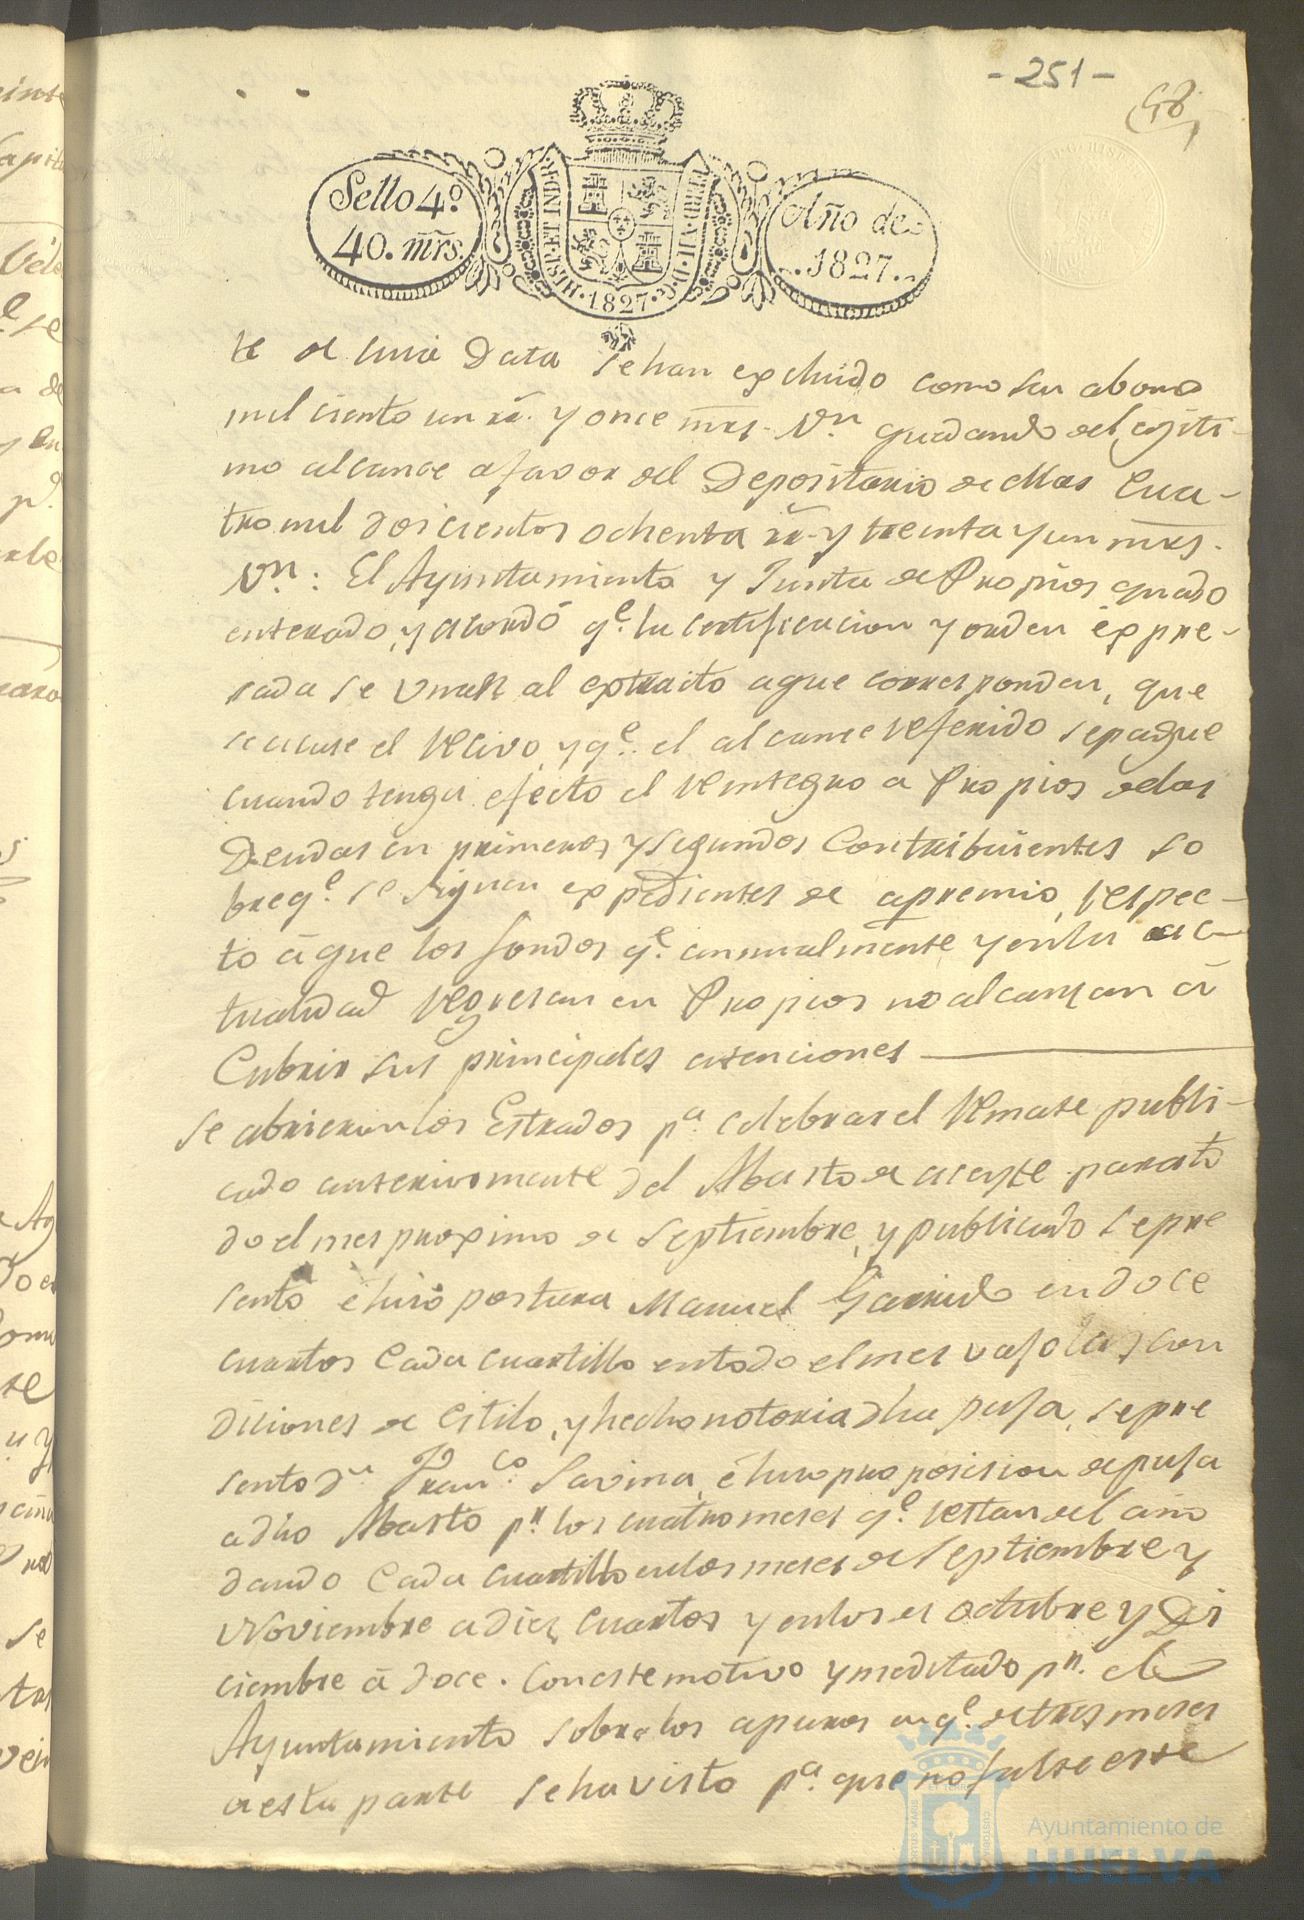 - 251 -
58
Sello 4º
40. mrs.
HISP. ET IND. R.
FERD. VII. D. G.
1827
Año de
1827.
te de cuia Data se han excluido como su abono
mil ciento un rr. y once mrs. Vn. quedando el lejiti-
mo alcance a favor del Depositario de ellas Cua-
tro mil doscientos ochenta rr. y treinta y un mrs.
Vn.: El Ayuntamiento y Junta de Propios quedo
enterado, y acordó qe. la certificacion y orden éxpre-
sada se unan al extracto aque corresponden, que
se acuse el Recivo, y qe. el alcance Referido sepague
cuando tenga efecto el Reintegro a Propios delas
Deudas en primeros y segundos Contribuientes so
breqe. se siguen expedientes de apremio, Respec-
to á que los fondos qe. annualmente y enla ac-
tualidad Yngresan en Propios no alcanzan á
Cubrir sus principales atenciones
Se abrieron los Estrados pa. celebrar el Remate publi-
cado anteriormente del Abasto de aceyte para to
do el mes proximo de Septiembre, y publicado sepre
sentó é hizo postura Manuel Garrido en doce
cuartos cada cuartillo entodo el mes vajo las con
diciones de estilo, y hecha notoria dha puja, sepre
sento Dn. Franco. Savina, é hizo proposicion de puja
a dho Abasto pr. los cuatro meses qe. Restan del año
dando cada cuartillo enlos meses de Septiembre y
Noviembre adiez cuartos y enlos de Octubre y Di
ciembre á doce. Coneste motivo y meditado pr. el
Ayuntamiento sobre los apuros enqe. de tres meses
a esta parte se ha visto pa. que no falte este
Ayuntamiento de
HUELVA